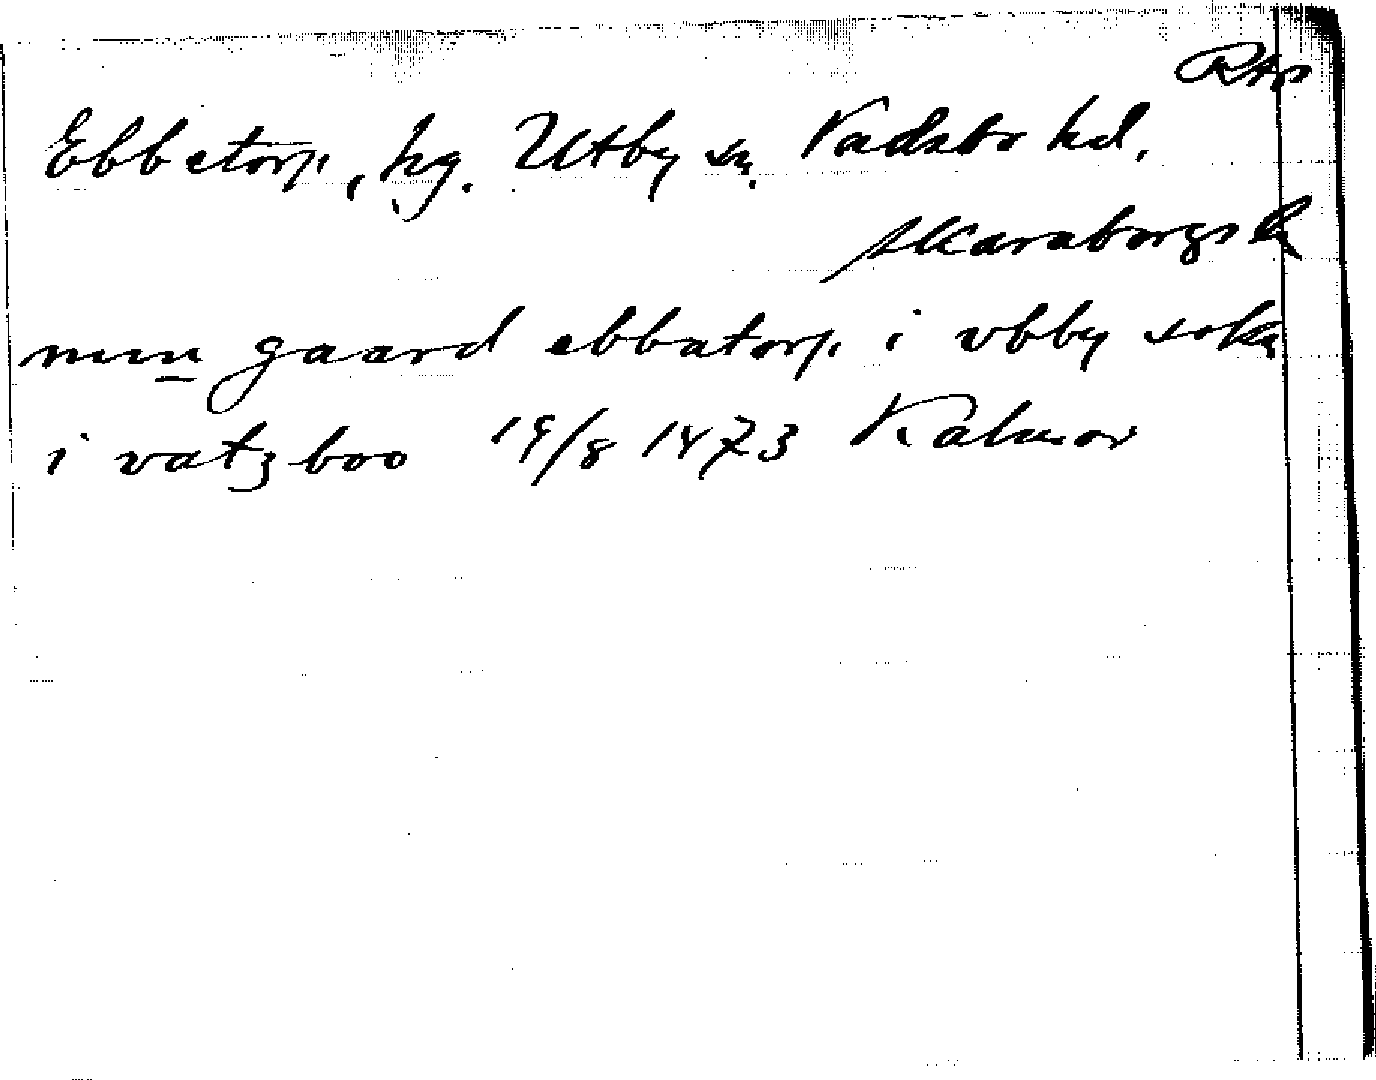 RAp
Ebbetorp, hg. Utby sn. Vadsbo hd.
Skaraborgs l.
min gaard ebbatorp i vbby sokn
i vatzboo 19/8 1473 Kalmar